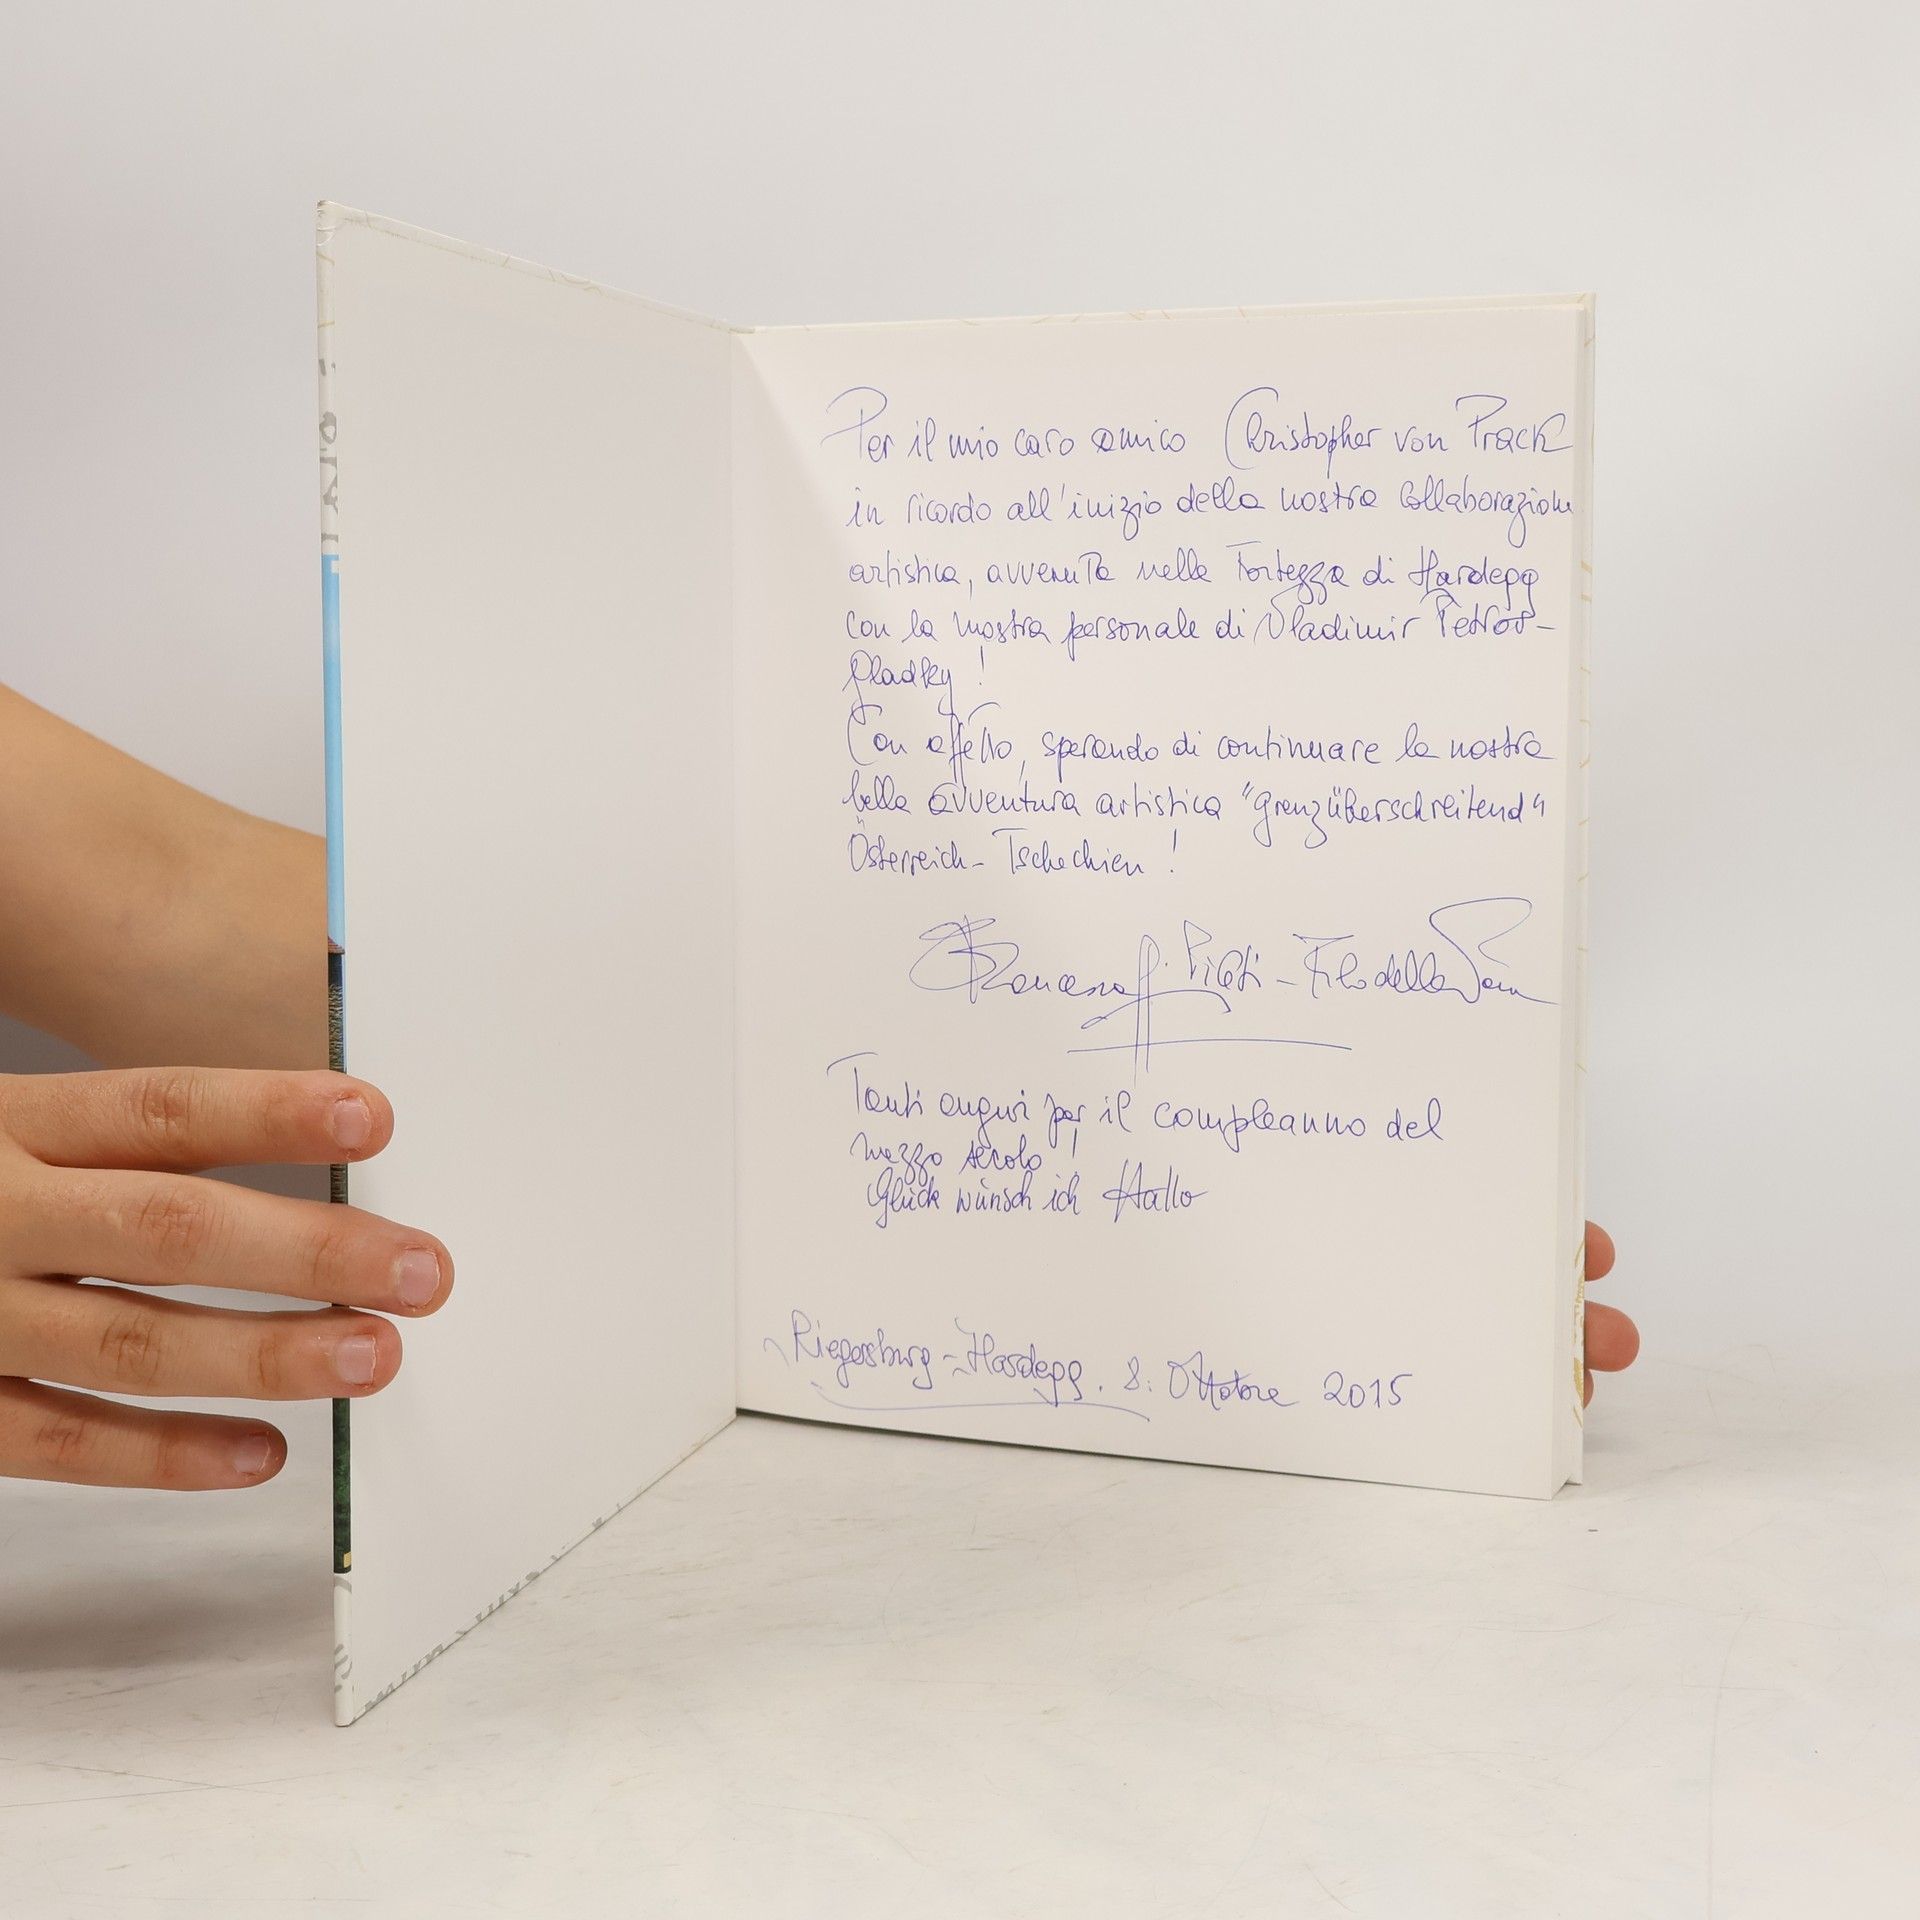 Per il mio caro amico Christopher von Prack
in ricordo all'inizio della nostra collaborazione
artistica, avvenuta nella Fortezza di Hardegg
con la mostra personale di Vladimir Petrov-
Gladky!
Con affetto, sperando di continuare la nostra
bella avventura artistica "grenzüberschreitend"
Österreich - Tschechien!
Filo della
Tanti auguri per il compleanno del
mezzo secolo!
Glück wünsch ich Hallo
Riegersburg - Hardegg. 8. Ottobre 2015